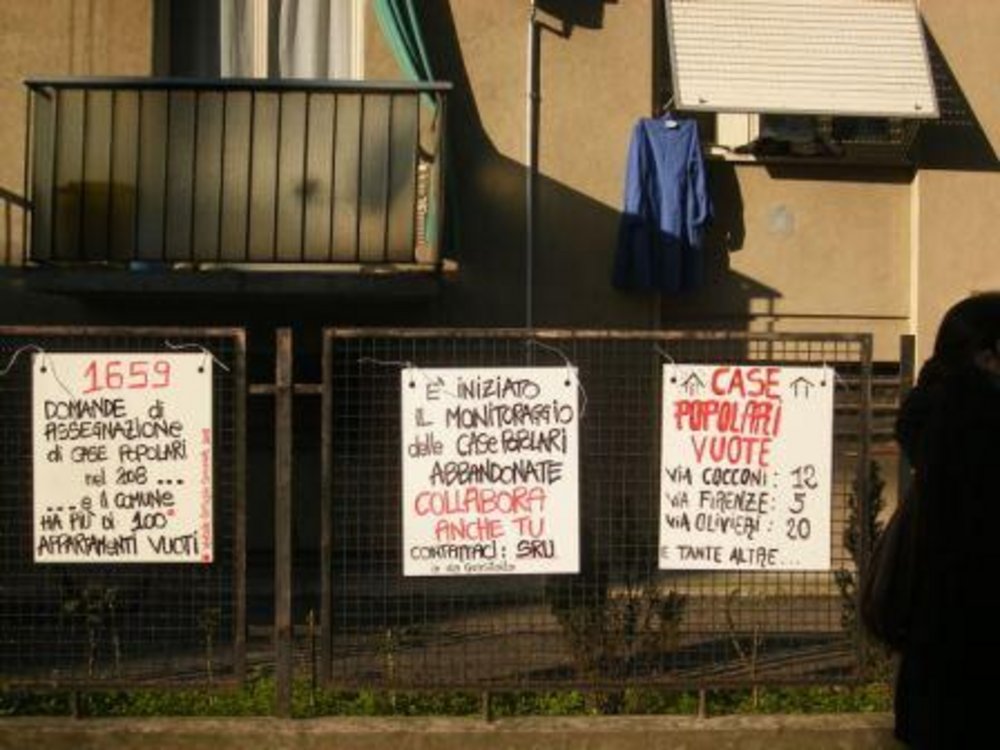 1659
DOMANDE di
ASSEGNAZIONE
di CASE POPOLARI
nel 2013 ...
... e il COMUNE
HA PIÙ DI 100*
APPARTAMENTI VUOTI
È INIZIATO
IL MONITORAGGIO
delle CASE POPOLARI
ABBANDONATE
COLLABORA
ANCHE TU
CONTATTACI: SRU
CASE
POPOLARI
VUOTE
VIA COCCONI: 12
VIA FIRENZE: 5
VIA OLIVIERI: 20
E TANTE ALTRE...